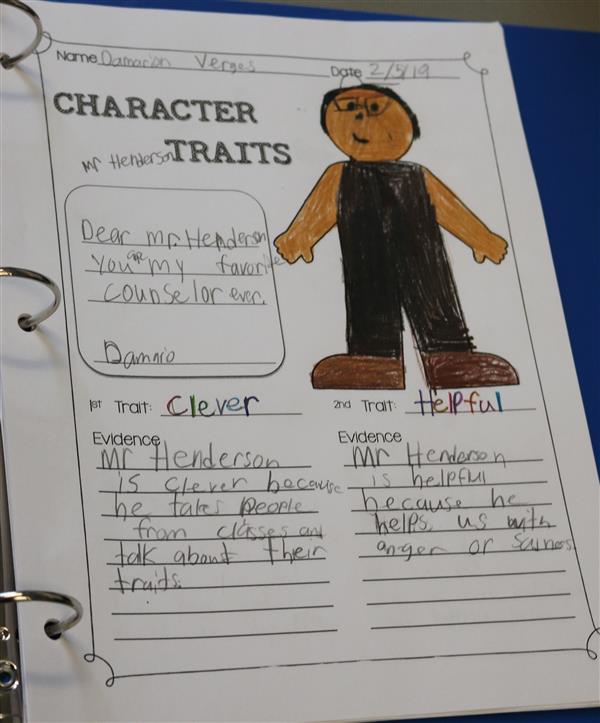 Name Damarion Verges Date 2/5/19
CHARACTER
Mr Henderson TRAITS
Dear mr. Henderson
You are my favorite
counselor ever.
Damnio
1st Trait: Clever
2nd Trait: Helpful
Evidence
Mr Henderson
is clever because
he takes people
from classes and
talk about their
traits.
Evidence
Mr Henderson
is helpful
because he
helps us with
anger or sainess